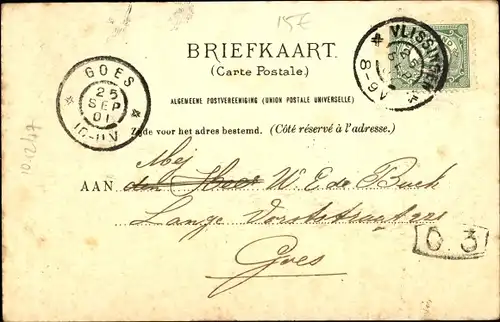 15€
BRIEFKAART.
(Carte Postale.)
ALGEMEENE POSTVEREENIGING (UNION POSTALE UNIVERSELLE)
Zijde voor het adres bestemd. (Côté réservé à l'adresse.)
VLISSINGEN
8-9V
GOES
25
SEP
01
10-11V
Mej
AAN den Heer W. E. de Buck
Lange
Goes
0 3